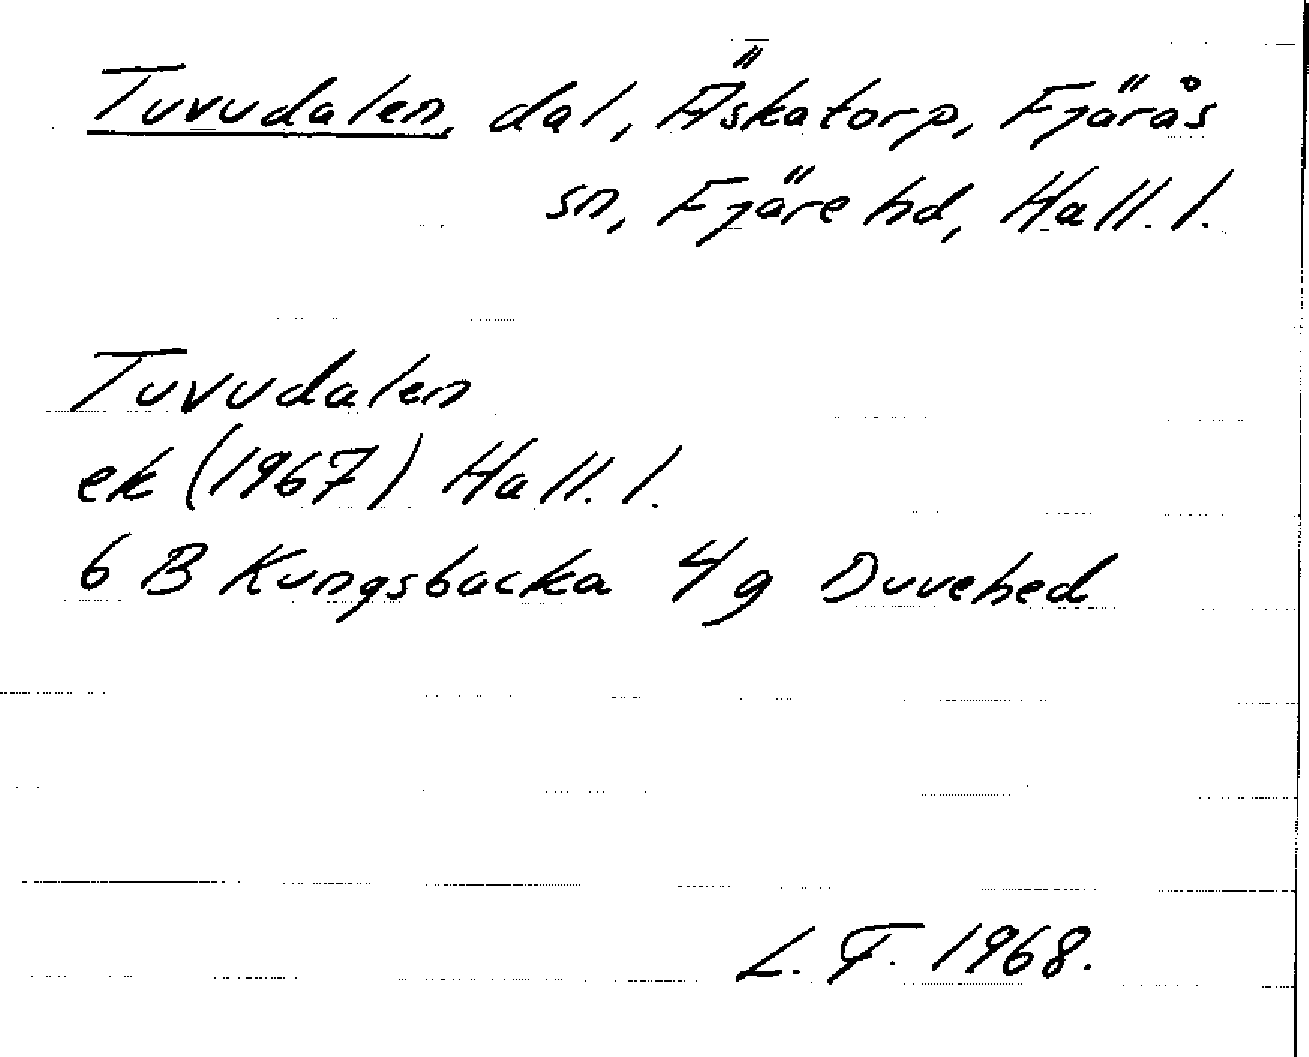 Tuvudalen, dal, Äskatorp, Fjärås
sn, Fjäre hd, Hall. l.
Tuvudalen
ek (1967) Hall. l.
6 B Kungsbacka 4 g Duvehed
L. F. 1968.